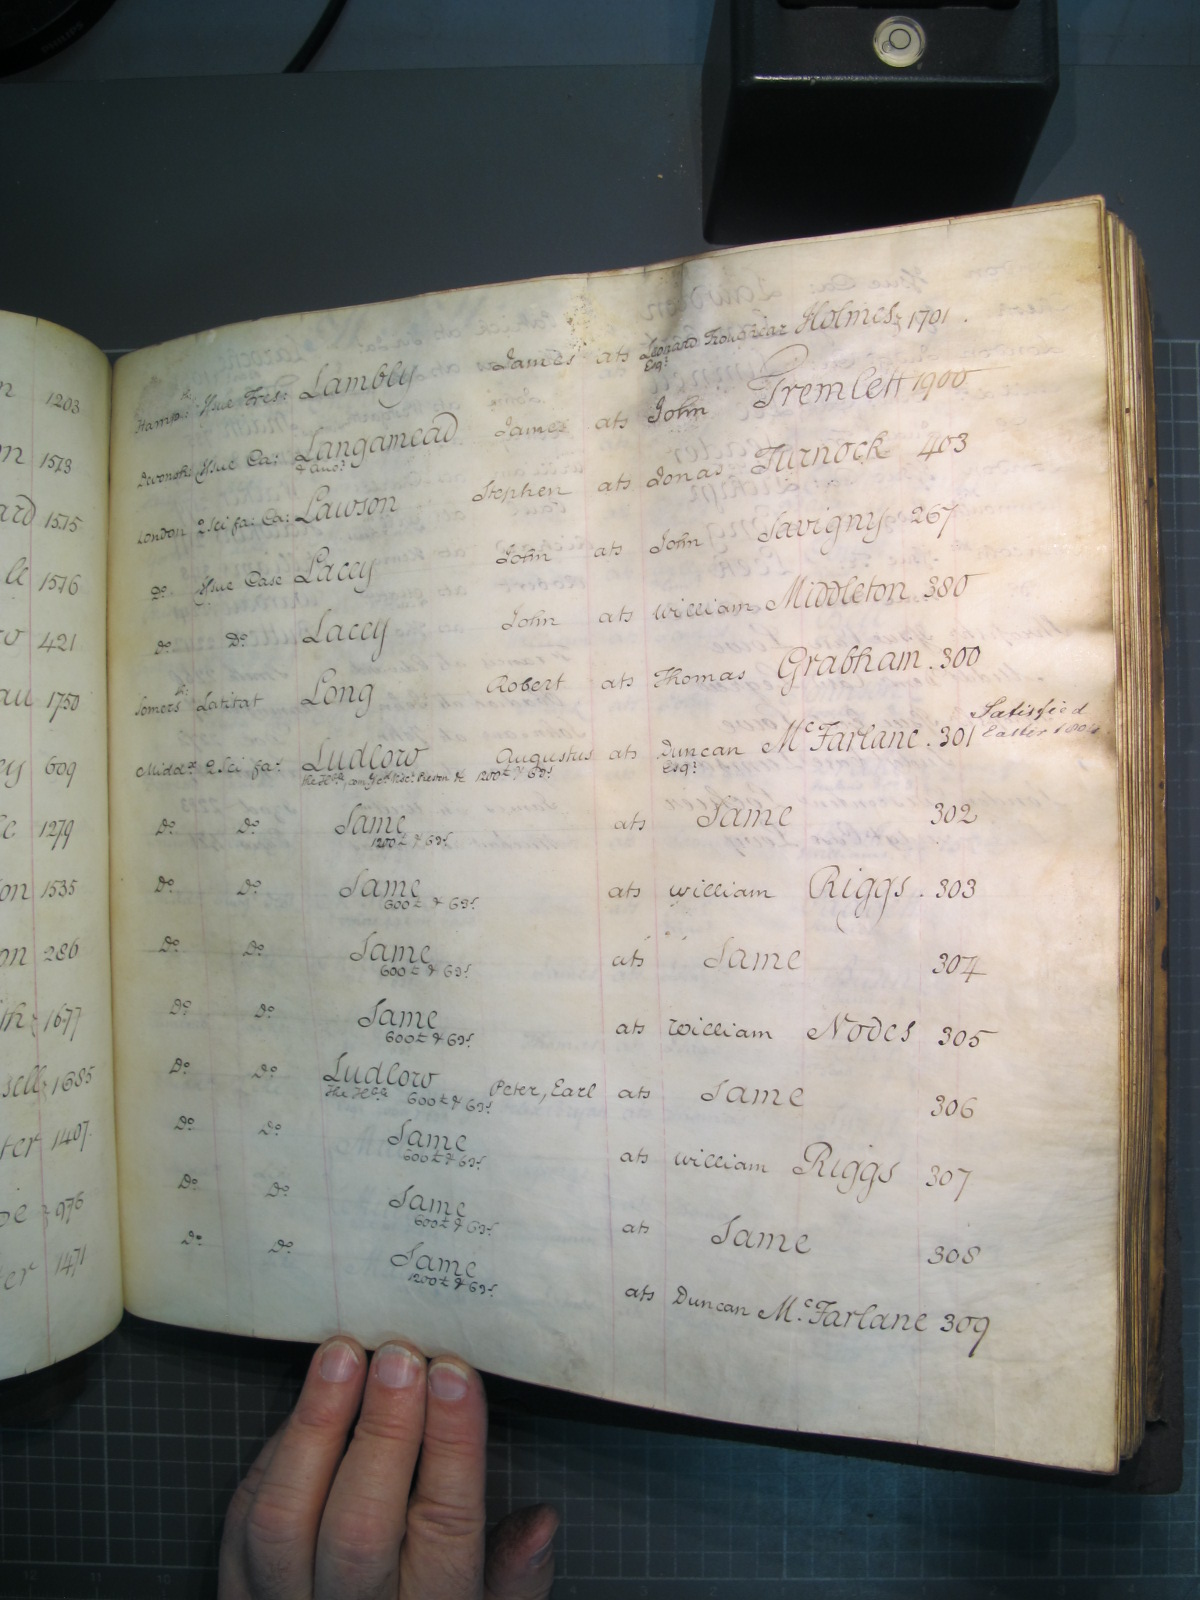 n 1203
n 1573
ard 1575
le 1576
421
au 1750
ey 609
1279
on 1535
on 286
th 1677
sell 1685
ter 1407
pe 976
er 1471
Hamp.re Issue Tres: Lambly James ats Leonard Troughear Holmes 1701.
Esqr.
Devonsh Issue Ca: Langamead James ats John Tremlett 1900
& anor.
London 2 Sci fa: Ca: Lawson Stephen ats Jonas Turnock 403
Do. Issue Case Lacey John ats John Savigny 267
Do. Do. Lacey John ats William Middleton 380
Somerst. Latitat Long Robert ats Thomas Grabham. 300
Middx. 2 Sci fa: Ludlow Augustus ats Duncan McFarlane. 301 Satisfied
Easter 1804
Esqr.
1200£ & 63s.
Do. Do. Same ats Same 302
1200£ & 63s.
Do. Do. Same ats William Riggs. 303
600£ & 63s.
Do. Do. Same ats Same 304
600£ & 63s.
Do. Do. Same ats William Nodes 305
600£ & 63s.
Do. Do. Ludlow Peter, Earl ats Same 306
The Honble. 600£ & 63s.
Do. Do. Same ats William Riggs 307
600£ & 63s.
Do. Do. Same ats Same 308
600£ & 63s.
Do. Do. Same ats Duncan McFarlane 309
1200£ & 63s.